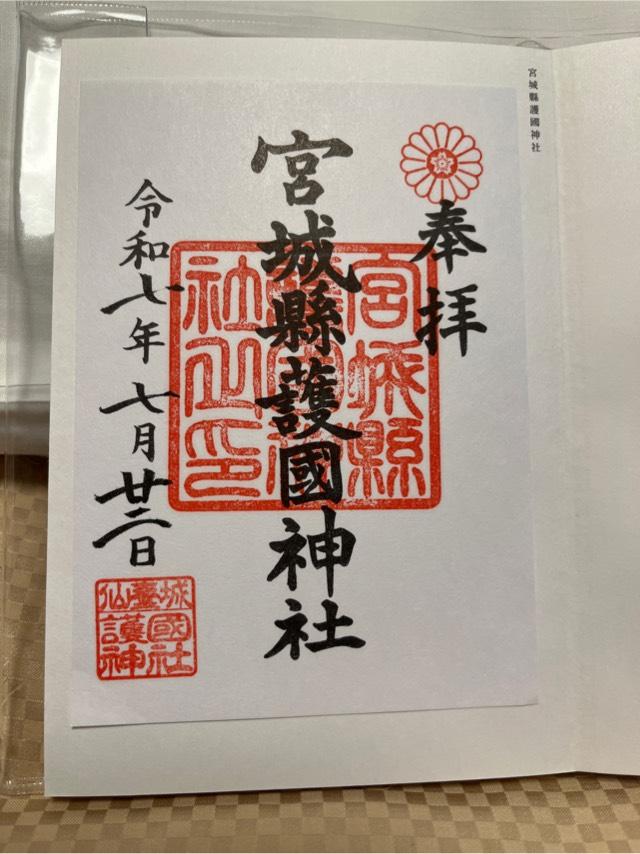 宮城縣護國神社
奉拝
宮城縣護國神社
宮城縣
社之印
令和七年 七月廿二日
仙臺城
護國
神社